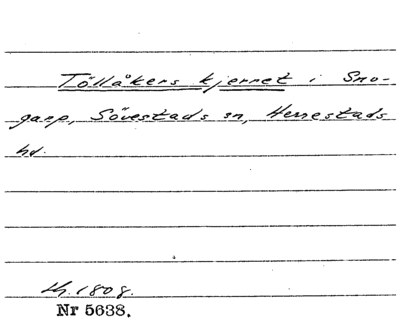 Töllåkers kjernet i Sno-
garp, Sövestads sn, Herrestads
hd.
lh. 1808.
Nr 5638.